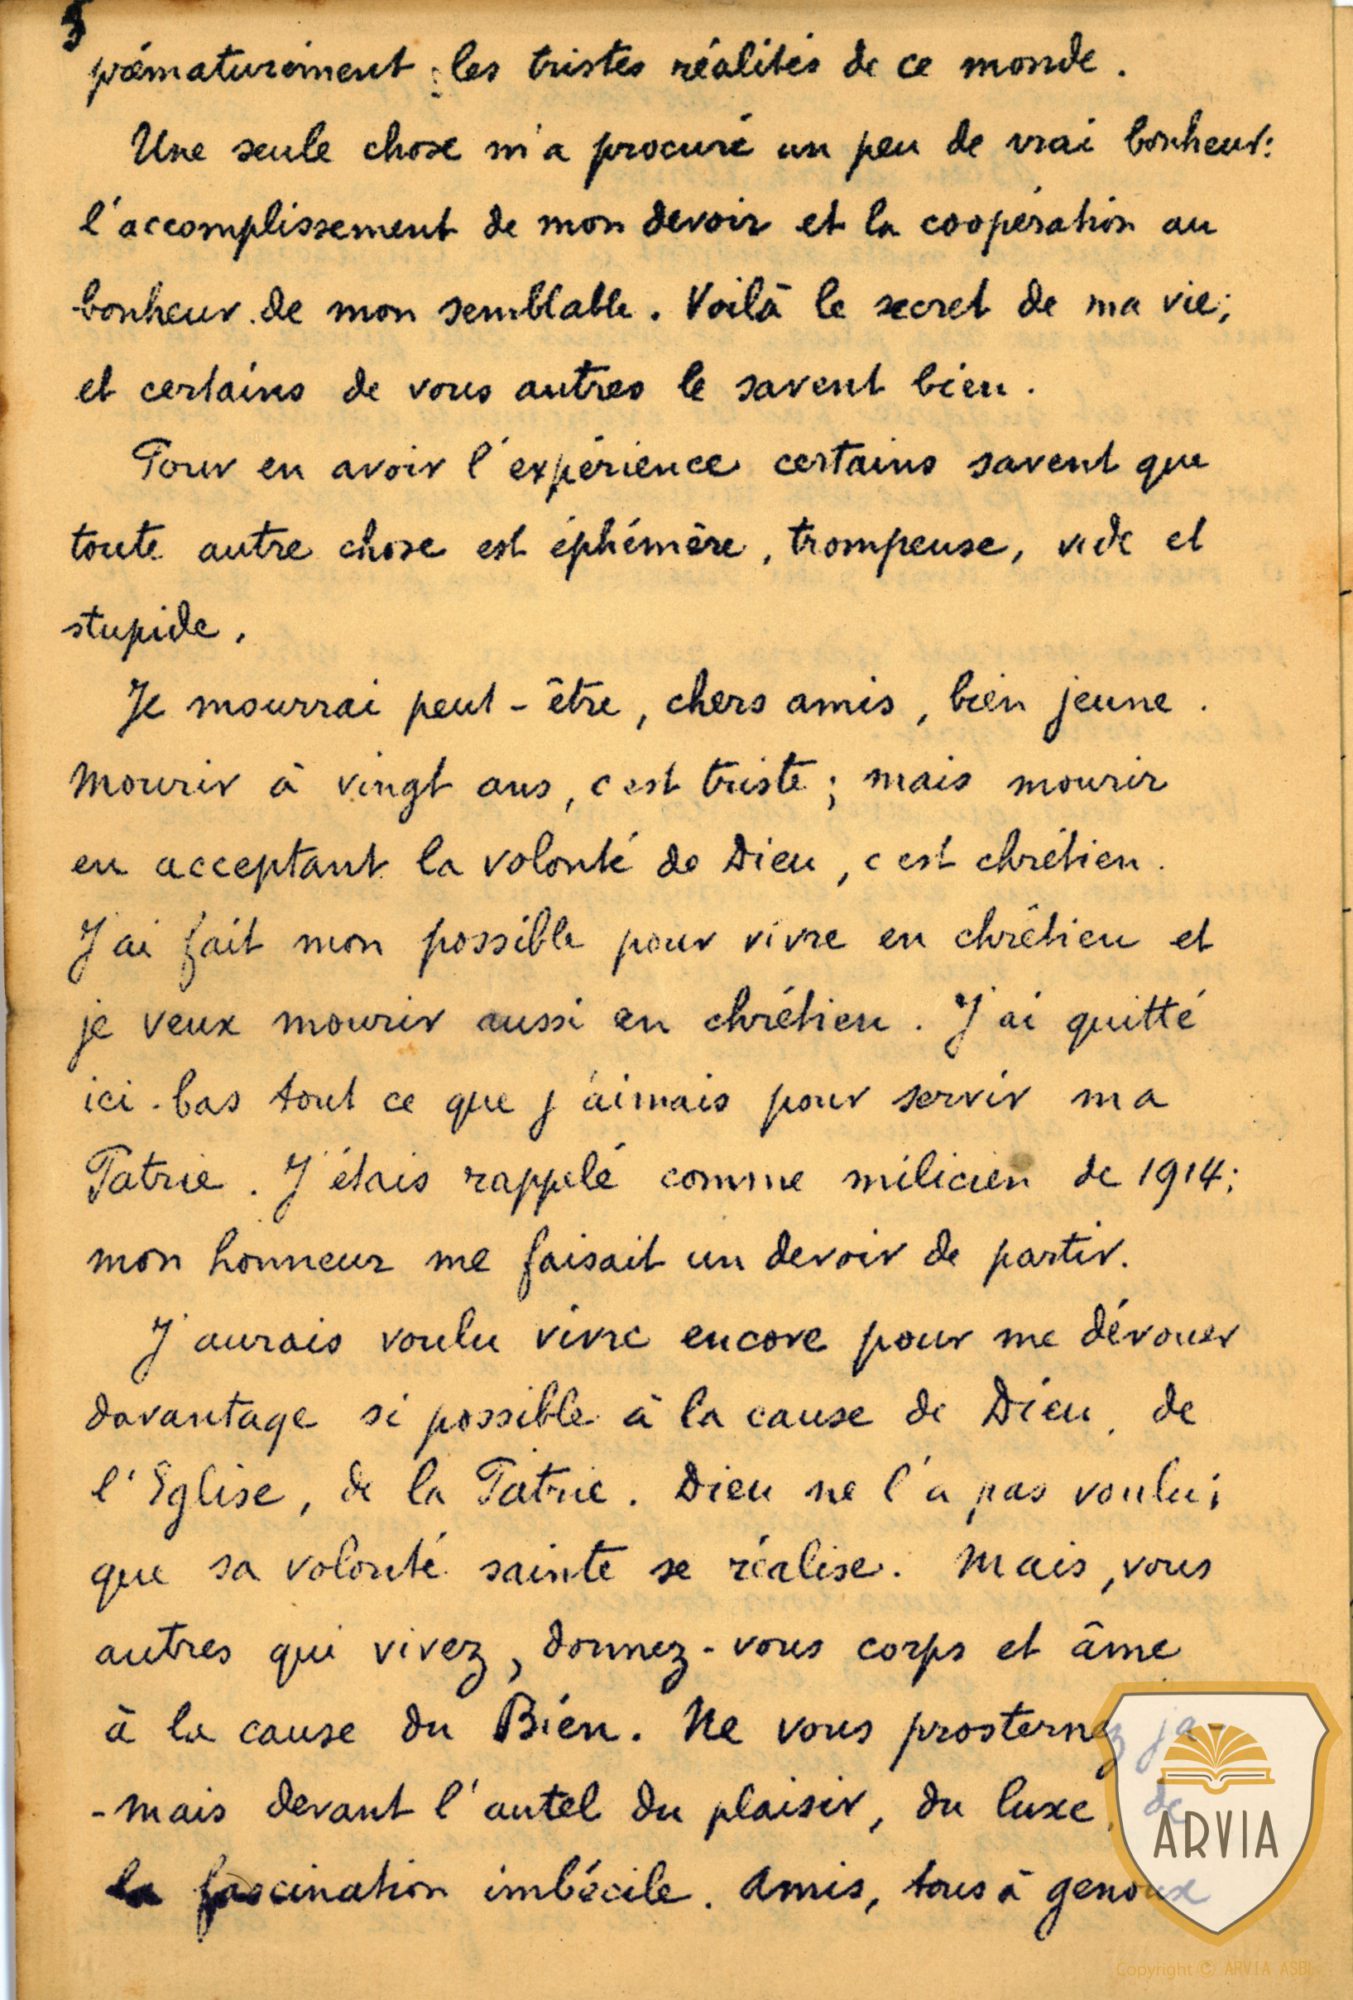 5
prématurément les tristes réalités de ce monde.
Une seule chose m'a procuré un peu de vrai bonheur:
l'accomplissement de mon devoir et la coopération au
bonheur de mon semblable. Voilà le secret de ma vie;
et certains de vous autres le savent bien.
Pour en avoir l'expérience certains savent que
toute autre chose est éphémère, trompeuse, vide et
stupide.
Je mourrai peut-être, chers amis, bien jeune.
Mourir à vingt ans, c'est triste; mais mourir
en acceptant la volonté de Dieu, c'est chrétien.
J'ai fait mon possible pour vivre en chrétien et
je veux mourir aussi en chrétien. J'ai quitté
ici-bas tout ce que j'aimais pour servir ma
Patrie. J'étais rappelé comme milicien de 1914;
mon honneur me faisait un devoir de partir.
J'aurais voulu vivre encore pour me dévouer
davantage si possible à la cause de Dieu, de
l'Eglise, de la Patrie. Dieu ne l'a pas voulu;
que sa volonté sainte se réalise. Mais, vous
autres qui vivez, donnez-vous corps et âme
à la cause du Bien. Ne vous prosternez ja-
-mais devant l'autel du plaisir, du luxe, de
la fascination imbécile. Amis, tous à genoux
ARVIA
Copyright © ARVIA ASBL